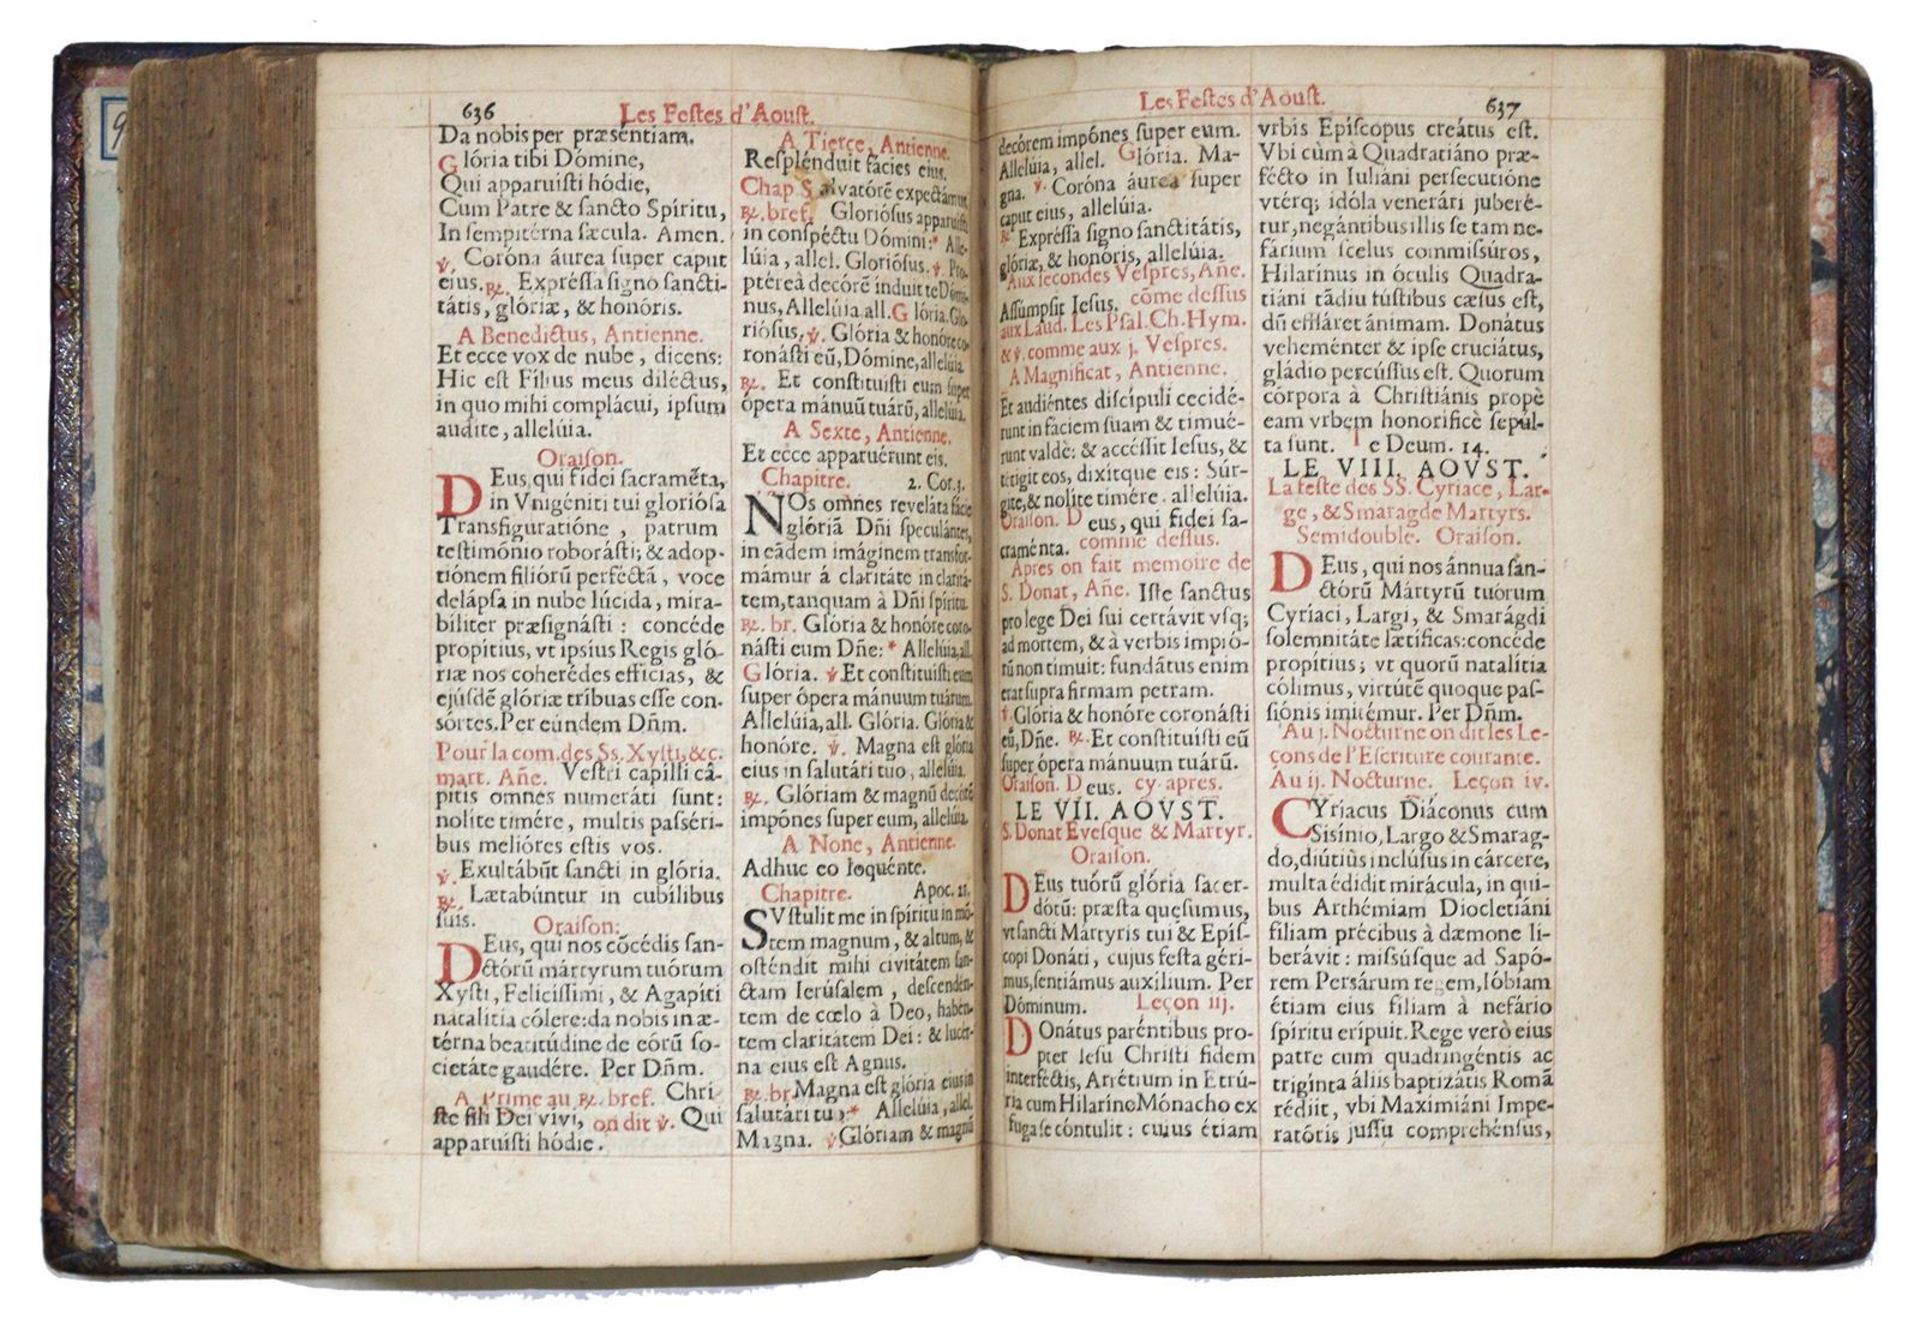 636
Les Feſtes d'Aouſt.
Da nobis per præséntiam.
Glória tibi Dómine,
Qui apparuiſti hódie,
Cum Patre & ſancto Spíritu,
In ſempitérna ſæcula. Amen.
℣. Coróna áurea ſuper caput
eius. ℞. Expréſſa ſigno ſancti-
tátis, glóriæ, & honóris.
A Benedictus, Antienne.
Et ecce vox de nube, dicens:
Hic eſt Fílius meus diléctus,
in quo mihi complácui, ipſum
audite, allelúia.
Oraiſon.
DEus, qui fídei ſacramẽta,
in Vnigéniti tui glorióſa
Transfiguratióne, patrum
teſtimónio roboráſti; & adop-
tiónem filiórũ perféctã, voce
delápſa in nube lúcida, mira-
biliter præſignáſti: concéde
propítius, vt ipsíus Regis gló-
riæ nos coherédes efficias, &
ejúſdẽ glóriæ tríbuas eſſe con-
sórtes. Per eúndem Dñm.
Pour la com. des Ss. Xyſti, &c.
mart. Añe. Veſtri capílli câ-
pitis omnes numeráti ſunt:
nolíte timére, multis paſſéri-
bus melióres eſtis vos.
℣. Exultábũt ſancti in glória.
℞. Lætabúntur in cubílibus
ſuis.
Oraiſon.
DEus, qui nos cõcédis ſan-
ctórũ mártyrum tuórum
Xyſti, Felicíſſimi, & Agapíti
natalítia cólere: da nobis in æ-
térna beatitúdine de eórũ ſo-
cietáte gaudére. Per Dñm.
A Prime au ℞. bref. Chri-
ſte fili Dei vivi, on dit ℣. Qui
apparuiſti hódie.
A Tierce, Antienne.
Reſplénduit fácies eius.
Chap. Salvatórẽ expectámus
℞. bref. Glorióſus apparuiſti
in conſpéctu Dómini: * Alle-
lúia, allel. Glorióſus. ℣. Pro-
ptéreà decórẽ índuit te Dómi-
nus, Allelúia all. Glória. Glo-
rióſus, ℣. Glória & honóre co-
ronáſti eũ, Dómine, allelúia.
℞. Et conſtituíſti eum ſuper
ópera mánuũ tuárũ, allelúia.
A Sexte, Antienne.
Et ecce apparuérunt eis.
Chapitre. 2. Cor. 3.
NOs omnes reveláta fácie
glóriã Dñi ſpeculántes,
in eãdem imáginem transfor-
mámur á claritáte in claritá-
tem, tanquam à Dñi ſpíritu.
℞. br. Glória & honóre coro-
náſti eum Dñe: * Allelúia, all.
Glória. ℣. Et conſtituíſti eum
ſuper ópera mánuum tuárum.
Allelúia, all. Glória. Glória &
honóre. ℣. Magna eſt glória
eius in ſalutári tuo, allelúia.
℞. Glóriam & magnũ decórẽ
impónes ſuper eum, allelúia.
A None, Antienne.
Adhuc eo loquénte.
Chapitre. Apoc. 21.
SVſtulit me in ſpíritu in mó-
tem magnum, & altum, &
oſténdit mihi civitátem ſan-
ctam Ierúſalem, deſcendén-
tem de cœlo à Deo, habén-
tem claritátem Dei: & lucér-
na eius eſt Agnus.
℞. br. Magna eſt glória eius in
ſalutári tuo: * Allelúia, allel.
Magna. ℣. Glóriam & magnũ
Les Feſtes d'Aouſt.
637
decórem impónes ſuper eum.
Allelúia, allel. Glória. Ma-
gna. ℣. Coróna áurea ſuper
caput eius, allelúia.
℞. Expréſſa ſigno ſanctitátis,
glóriæ, & honóris, allelúia.
Aux ſecondes Veſpres, Añe.
Aſſúmpſit Ieſus. cõme deſſus
aux Laud. Les Pſal. Ch. Hym.
& ℣. comme aux j. Veſpres.
A Magnificat, Antienne.
Et audiéntes diſcípuli cecidé-
runt in fáciem ſuam & timué-
runt valdè: & acceſſit Ieſus, &
tétigit eos, dixítque eis: Súr-
gite, & nolíte timére. allelúia.
Oraiſon. Deus, qui fídei ſa-
craménta. comme deſſus.
Apres on fait memoire de
S. Donat, Añe. Iſte ſanctus
pro lege Dei ſui certávit vſq;
ad mortem, & à verbis impió-
rũ non tímuit: fundátus enim
erat ſupra firmam petram.
℣. Glória & honóre coronáſti
eũ, Dñe. ℞. Et conſtituíſti eũ
ſuper ópera mánuum tuárũ.
Oraiſon. Deus. cy apres.
LE VII. AOVST.
S. Donat Eveſque & Martyr.
Oraiſon.
DEus tuórũ glória ſacer-
dótũ: præſta quęſumus,
vt ſancti Mártyris tui & Epíſ-
copi Donáti, cujus feſta géri-
mus, ſentiámus auxílium. Per
Dóminum. Leçon iij.
DOnátus paréntibus pro-
pter Ieſu Chriſti fidem
interféctis, Arrétium in Etrú-
ria cum Hilaríno Mónacho ex
fuga ſe cóntulit: cuius étiam
vrbis Epíſcopus creátus eſt.
Vbi cùm à Quadratiáno præ-
fécto in Iuliáni perſecutióne
vtérq; idóla venerári juberé-
tur, negántibus illis ſe tam ne-
fárium ſcelus commiſſúros,
Hilarínus in óculis Quadra-
tiáni tãdiu fúſtibus cæſus eſt,
dũ effláret ánimam. Donátus
veheménter & ipſe cruciátus,
gládio percúſſus eſt. Quorum
córpora à Chriſtiánis propè
eam vrbem honorificè ſepúl-
ta ſunt. Te Deum. 14.
LE VIII. AOVST.
La feſte des SS. Cyriace, Lar-
ge, & Smaragde Martyrs.
Semidouble. Oraiſon.
DEus, qui nos ánnua ſan-
ctórũ Mártyrũ tuórum
Cyríaci, Largi, & Smarágdi
ſolemnitáte lætíficas: concéde
propítius; vt quorũ natalítia
cólimus, virtútẽ quoque paſ-
ſiónis imitémur. Per Dñm.
Au j. Nocturne on dit les Le-
çons de l'Eſcriture courante.
Au ij. Nocturne. Leçon iv.
CYríacus Diáconus cum
Siſínio, Largo & Smarag-
do, diútiùs inclúſus in cárcere,
multa édidit mirácula, in qui-
bus Arthémiam Diocletiáni
fíliam précibus à dæmone li-
berávit: miſſúſque ad Sapó-
rem Perſárum regem, Ióbiam
étiam eius fíliam à nefário
ſpíritu erípuit. Rege verò eius
patre cum quadringéntis ac
trigínta áliis baptizátis Romã
rédiit, vbi Maximiáni Impe-
ratóris juſſu comprehénſus,